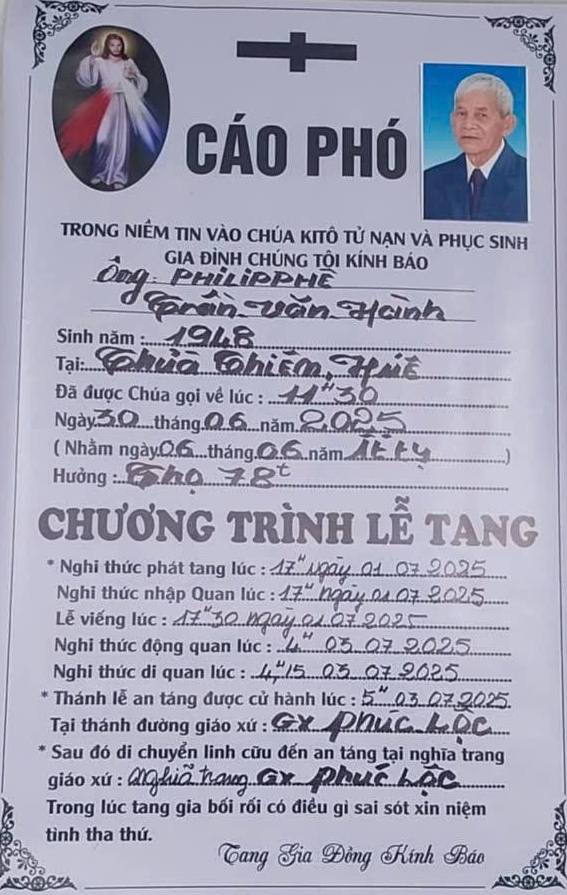 CÁO PHÓ
TRONG NIỀM TIN VÀO CHÚA KITÔ TỬ NẠN VÀ PHỤC SINH
GIA ĐÌNH CHÚNG TÔI KÍNH BÁO
Ông: PHILIPPHÊ
Trần Văn Hành
Sinh năm: 1948
Tại: Thừa Thiên, Huế
Đã được Chúa gọi về lúc: 11H30
Ngày 30 tháng 06 năm 2025
(Nhằm ngày 06 tháng 06 năm Ất Tỵ)
Hưởng: Thọ 78t
CHƯƠNG TRÌNH LỄ TANG
* Nghi thức phát tang lúc: 17H ngày 01 07 2025
Nghi thức nhập Quan lúc: 17H ngày 01 07 2025
Lễ viếng lúc: 17H30 ngày 01 07 2025
Nghi thức động quan lúc: 4H 03 07 2025
Nghi thức di quan lúc: 4H15 03 07 2025
* Thánh lễ an táng được cử hành lúc: 5H 03 07 2025
Tại thánh đường giáo xứ: GX Phúc Lộc
* Sau đó di chuyển linh cữu đến an táng tại nghĩa trang
giáo xứ: Nghĩa trang GX Phúc Lộc
Trong lúc tang gia bối rối có điều gì sai sót xin niệm
tình tha thứ.
Tang Gia Đồng Kính Báo